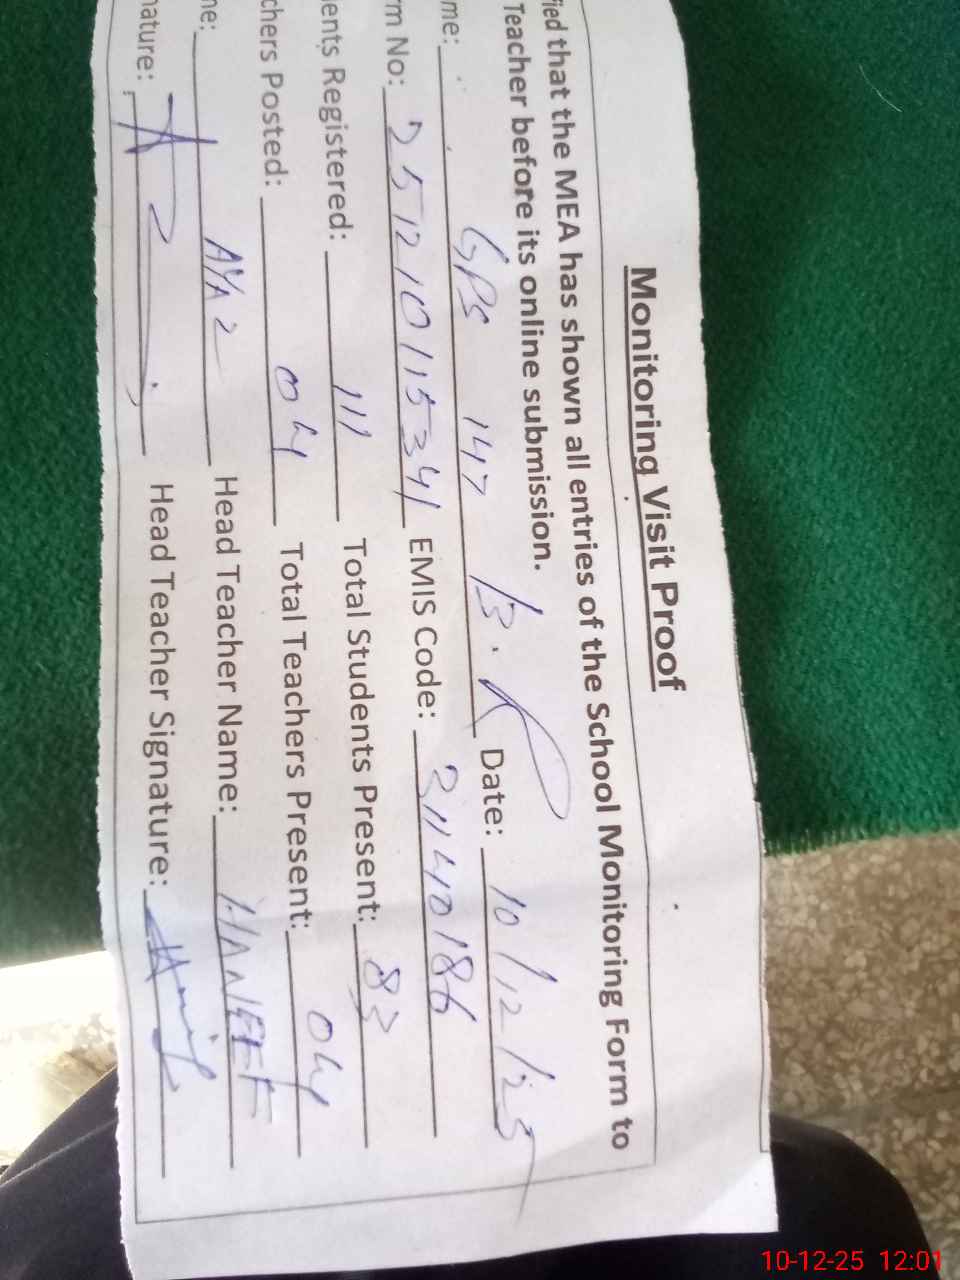 Monitoring Visit Proof
fied that the MEA has shown all entries of the School Monitoring Form to
Teacher before its online submission.
me: GPS 147 Date: 10/12/25
rm No: 251210115341 EMIS Code: 31140186
ents Registered: 111 Total Students Present: 83
chers Posted: 04 Total Teachers Present: 04
ne: Head Teacher Name: HANEEF
nature: Head Teacher Signature:
10-12-25 12:01